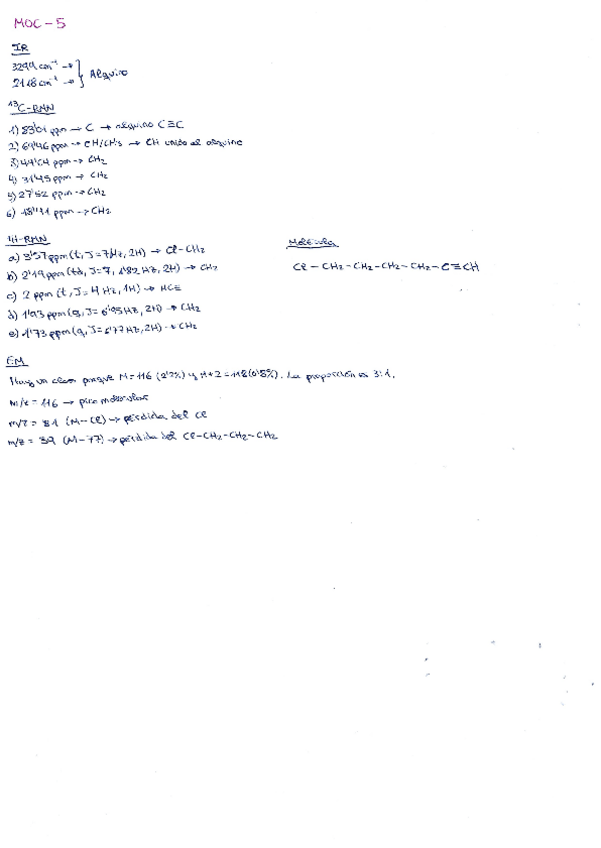 MOC-5
IR
3294 cm⁻¹ →
2118 cm⁻¹ → } Alquino
¹³C-RMN
1) 83'61 ppm → C → alquino C≡C
2) 69'46 ppm → CH/CH₃ → CH unido al alquino
3) 44'64 ppm → CH₂
4) 31'45 ppm → CH₂
5) 27'52 ppm → CH₂
6) ppm → CH₂
¹H-RMN
a) 3'57 ppm (t, J=7Hz, 2H) → Cl-CH₂
b) 2'19 ppm (td, J=7, 1'82 Hz, 2H) → CH₂
c) 2 ppm (t, J=4 Hz, 1H) → HC≡
d) 1'93 ppm (q, J=6'95Hz, 2H) → CH₂
e) 1'73 ppm (q, J=6'77Hz, 2H) → CH₂
Molécula
Cl-CH₂-CH₂-CH₂-CH₂-C≡CH
EM
Hay un cloro porque M=116 (2'2%) y M+2=118 (0'8%). La proporción es 3:1.
m/z = 116 → pico molecular
m/z = 81 (M-Cl) → pérdida del Cl
m/z = 39 (M-77) → pérdida del Cl-CH₂-CH₂-CH₂